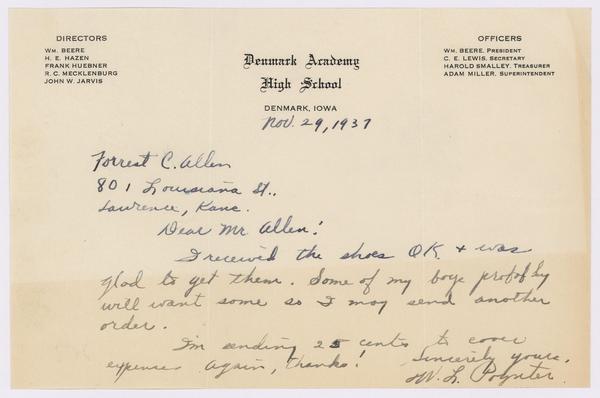 DIRECTORS
WM. BEERE
H. E. HAZEN
FRANK HUEBNER
R. C. MECKLENBURG
JOHN W. JARVIS
Denmark Academy
High School
DENMARK, IOWA
OFFICERS
WM. BEERE, PRESIDENT
C. E. LEWIS, SECRETARY
HAROLD SMALLEY, TREASURER
ADAM MILLER, SUPERINTENDENT
Nov. 29, 1937
Forrest C. Allen
801 Louisiana St.,
Lawrence, Kans.
Dear Mr. Allen:
I received the shoes O.K. + was
glad to get them. Some of my boys probably
will want some so I may send another
order.
I'm sending 25 cents to cover
expenses again, thanks!
Sincerely yours,
W. L. Poynter.